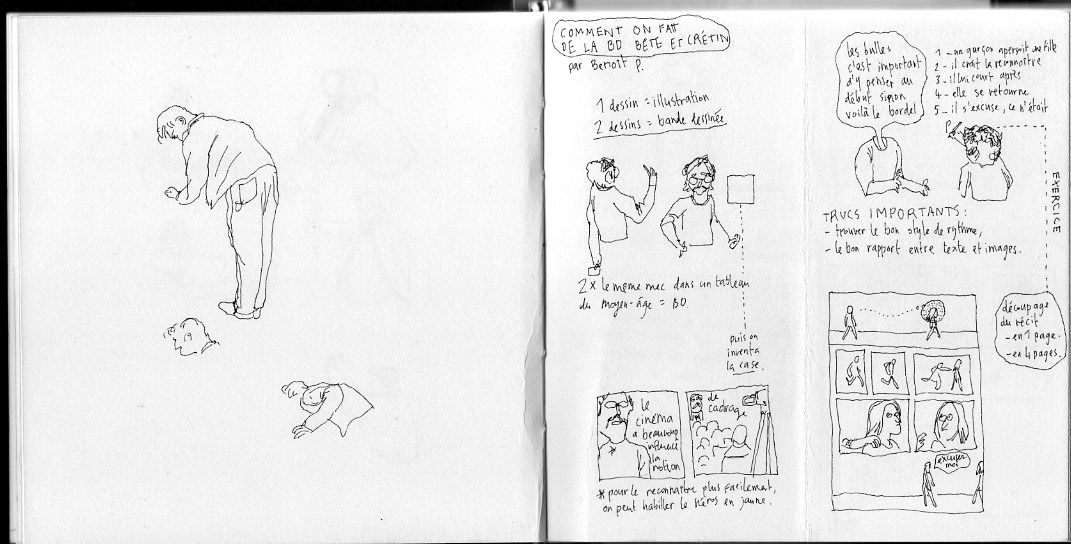 COMMENT ON FAIT
DE LA BD BÊTE ET CRÉTIN
par Benoît P.
1 dessin = illustration
2 dessins = bande dessinée
2 × le même mec dans un tableau
du moyen-âge = BD.
puis on
inventa
la case.
le
cinéma
a beaucoup
influencé
la
notion
de
cadrage
* pour le reconnaître plus facilement,
on peut habiller le héros en jaune.
les bulles
c'est important
d'y penser au
début sinon
voilà le bordel
1 - un garçon aperçoit une fille
2 - il croit la reconnaître
3 - il lui court après
4 - elle se retourne
5 - il s'excuse, ce n'était
P
EXERCICE
TRUCS IMPORTANTS :
- trouver le bon style de rythme,
- le bon rapport entre texte et images.
découpage
du récit
- en 1 page.
- en 4 pages.
excusez
moi